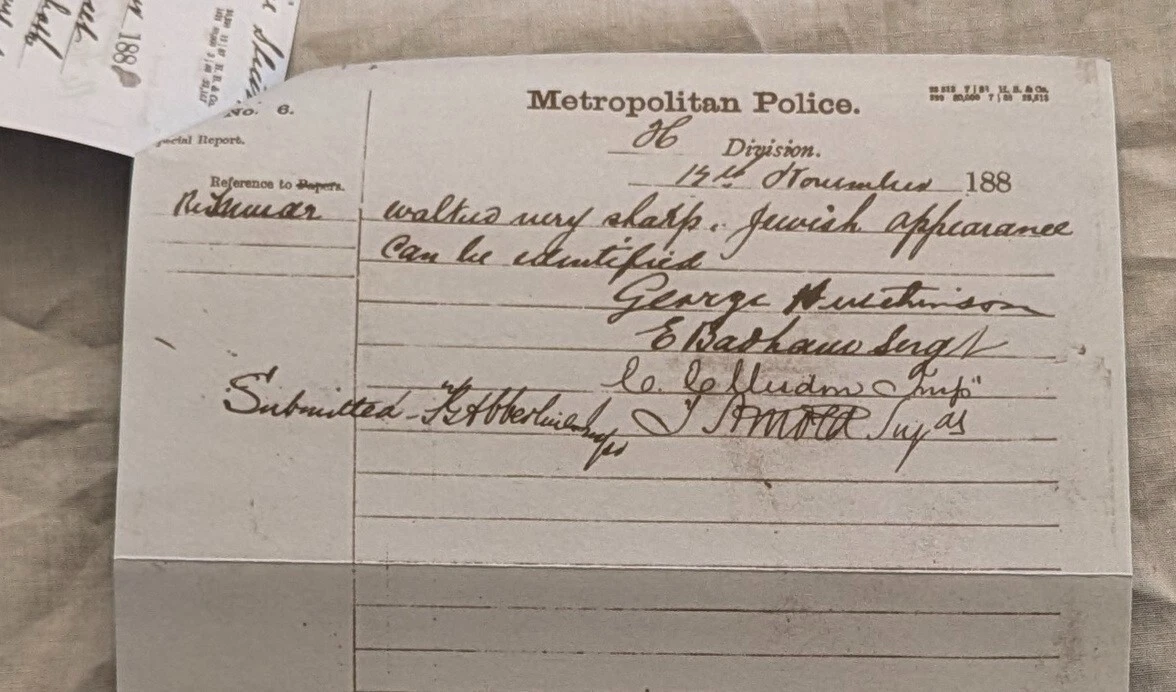 188
No. 6.
Special Report.
Reference to Papers.
Re Murder
Metropolitan Police.
H Division.
12th November 188
walked very sharp. Jewish appearance
can be identified
George Hutchinson
E Badham Sergt
C. Ellisdon Insp
Submitted F G Abberline Insp T Arnold Supd